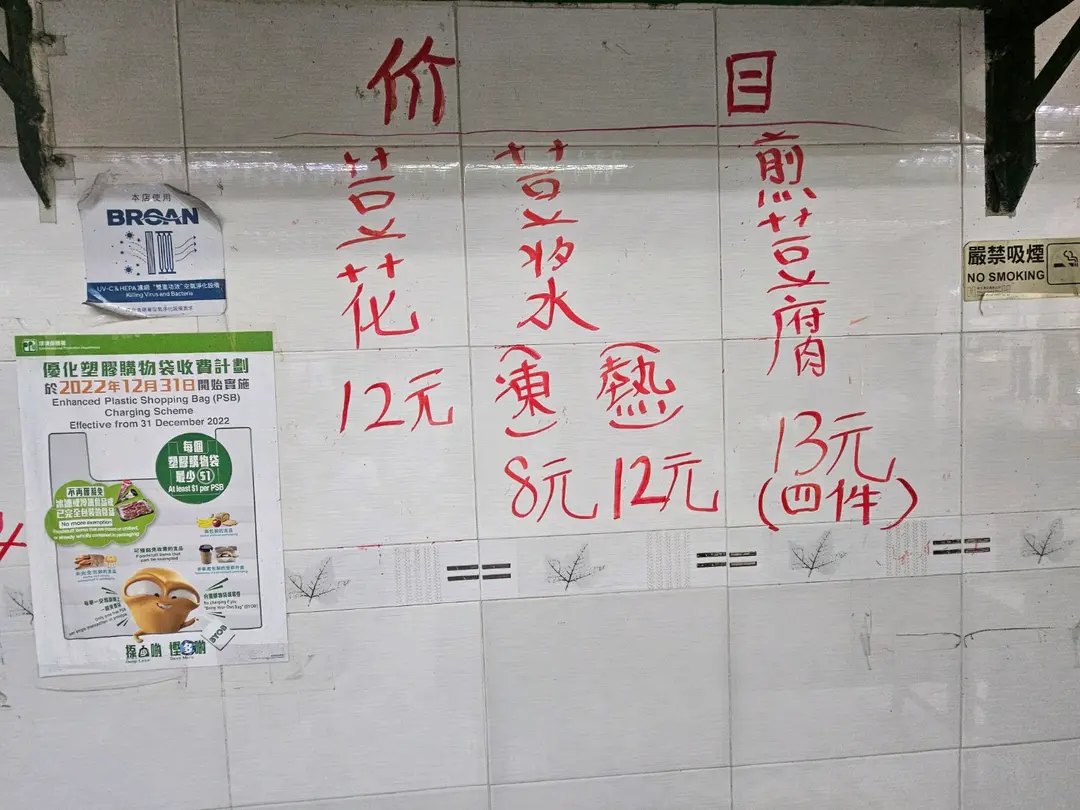 价目
煎荳腐
13元
(四件)
荳浆
(凍) (熱)
8元 12元
荳花
12元
本店使用
BROAN
UV-C & HEPA 濾網 "雙重功效" 空氣淨化設備
Killing Virus and Bacteria
環境保護署
優化塑膠購物袋收費計劃
於2022年12月31日開始實施
Enhanced Plastic Shopping Bag (PSB)
Charging Scheme
Effective from 31 December 2022
每個
塑膠購物袋
最少$1
At least $1 per PSB
不再豁免
冰凍或冷凍食品或
已完全包裝的食品
No more exemption
可獲豁免收費的食品
BYOB
嚴禁吸煙
NO SMOKING